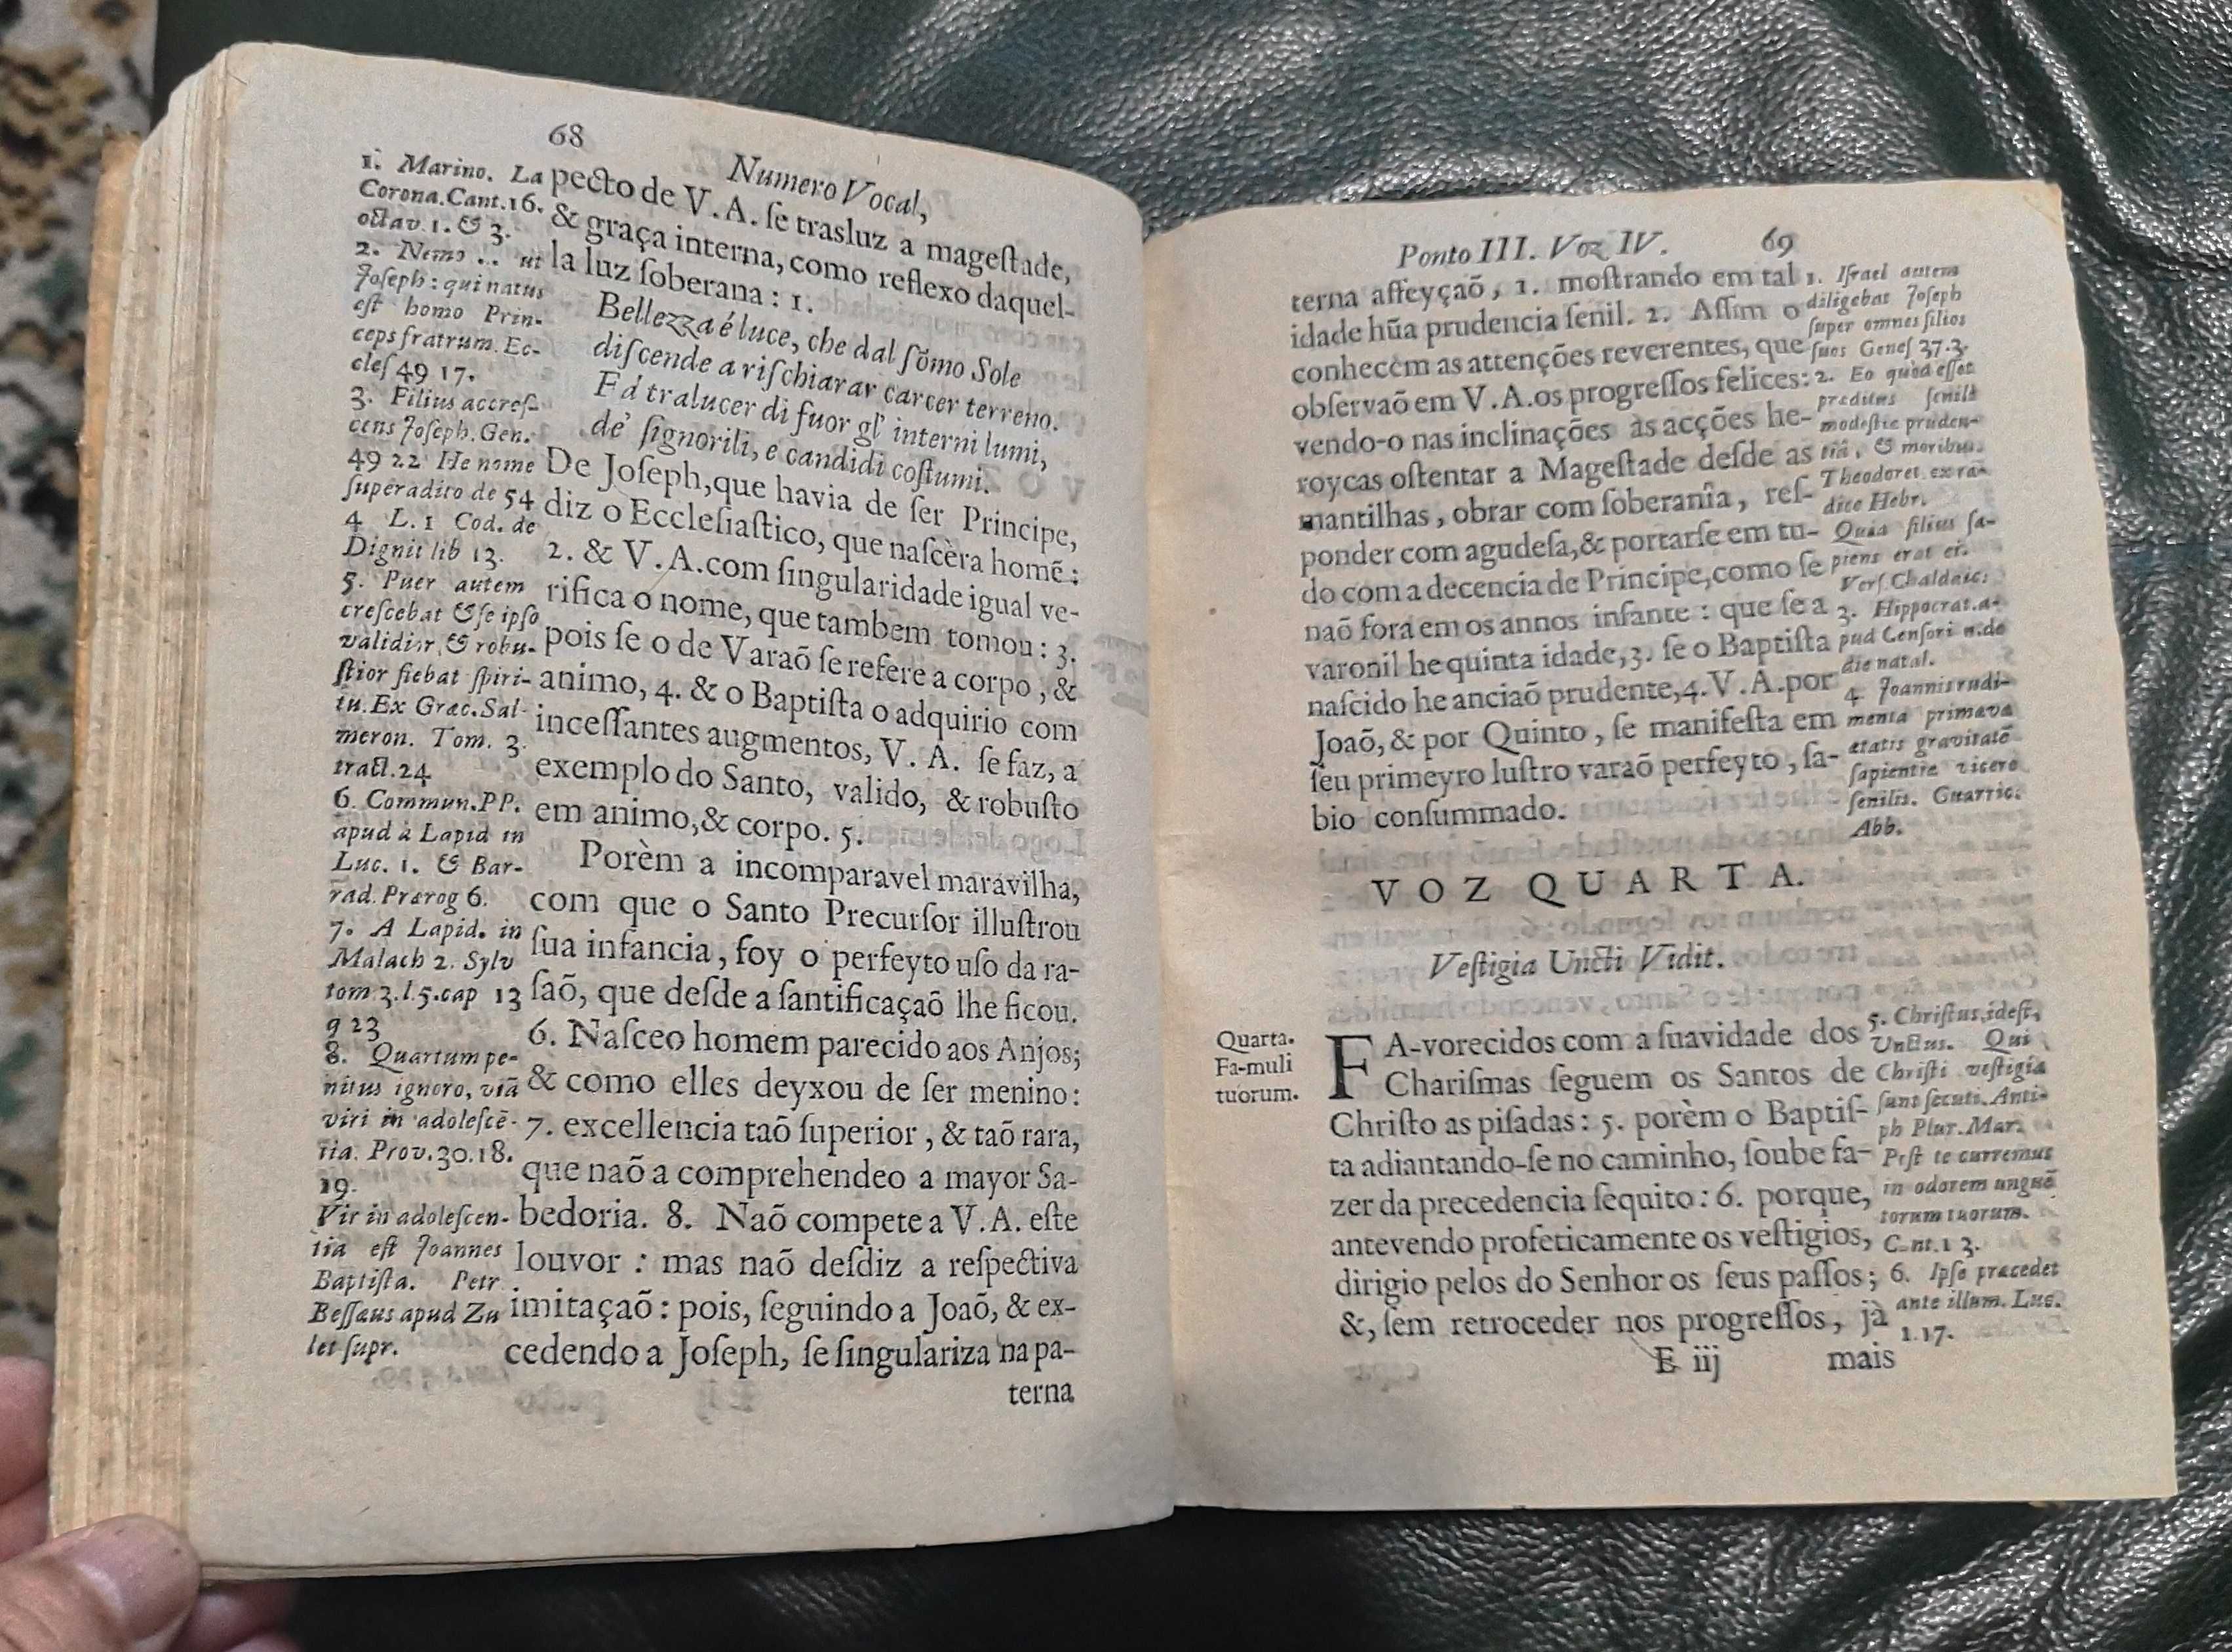 68
Numero Vocal,
1. Marino. La
Corona.Cant.16.
octav.1.& 3.
2. Nemo .. ut
Joseph: qui natus
est homo Prin-
ceps fratrum.Ec-
cles 49 17.
3. Filius accres-
cens Joseph.Gen.
49 22 He nome
superadito de 54
4 L.1 Cod. de
Dignit lib 13.
5. Puer autem
crescebat & se ipso
validior, & robu-
stior fiebat spiri-
tu.Ex Græc.Sal-
meron. Tom. 3.
tract.24
6. Commun.PP.
apud à Lapid in
Luc. 1. & Bar-
rad.Prærog 6.
7. A Lapid. in
Malach 2. Sylv
tom 3.l.5.cap 13
q 23
8. Quartum pe-
nitus ignoro, viã
viri in adolescẽ-
tia. Prov.30.18.
19.
Vir in adolescen-
tia est Joannes
Baptista. Petr
Bessæus apud Zu
let supr.
pecto de V.A. ſe trasluz a mageſtade,
& graça interna, como reflexo daquel-
la luz ſoberana : 1.
Bellezza é luce, che dal ſõmo Sole
diſcende a riſchiarar carcer terreno.
Fà tralucer di fuor gl' interni lumi,
de' ſignorili, e candidi coſtumi.
De Joſeph,que havia de ſer Principe,
diz o Eccleſiaſtico, que naſcèra homẽ :
2. & V.A.com ſingularidade igual ve-
rifica o nome, que tambem tomou : 3.
pois ſe o de Varaõ ſe refere a corpo , &
animo, 4. & o Baptiſta o adquirio com
inceſſantes augmentos, V. A. ſe faz, a
exemplo do Santo, valido, & robuſto
em animo,& corpo. 5.
Porèm a incomparavel maravilha,
com que o Santo Precurſor illuſtrou
ſua infancia , foy o perfeyto uſo da ra-
ſaõ, que deſde a ſantificaçaõ lhe ficou.
6. Naſceo homem parecido aos Anjos;
& como elles deyxou de ſer menino:
7. excellencia taõ ſuperior , & taõ rara,
que naõ a comprehendeo a mayor Sa-
bedoria. 8. Naõ compete a V.A. eſte
louvor : mas naõ deſdiz a reſpectiva
imitaçaõ : pois, ſeguindo a Joaõ, & ex-
cedendo a Joſeph, ſe ſingulariza na pa-
terna
Ponto III. Voz IV.
69
terna affeyçaõ , 1. moſtrando em tal
idade hũa prudencia ſenil. 2. Aſſim o
conhecèm as attenções reverentes, que
obſervaõ em V.A.os progreſſos felices:
vendo-o nas inclinações às acções he-
roycas oſtentar a Mageſtade deſde as
mantilhas , obrar com ſoberanîa , reſ-
ponder com agudeſa,& portarſe em tu-
do com a decencia de Principe,como ſe
naõ fora em os annos infante : que ſe a
varonil he quinta idade,3. ſe o Baptiſta
naſcido he anciaõ prudente,4.V.A.por
Joaõ,& por Quinto , ſe manifeſta em
ſeu primeyro luſtro varaõ perfeyto , ſa-
bio conſummado.
1. Iſrael autem
diligebat Joſeph
ſuper omnes filios
ſuos Geneſ 37.3.
2. Eo quod eſſet
præditus ſenili
modeſtie pruden-
tiâ, & moribus.
Theodoret. ex ra-
dice Hebr.
Quia filius ſa-
piens erat ei.
Verſ.Chaldaic:
3. Hippocrat.a-
pud Cenſori n.de
die natal.
4. Joannis rudi-
menta primeva
ætatis gravitatẽ
ſapientiæ vicere
ſenilis. Guarric.
Abb.
VOZ QUARTA.
Veſtigia Uncti Vidit.
Quarta.
Fa-muli
tuorum.
FA-vorecidos com a ſuavidade dos
Chariſmas ſeguem os Santos de
Chriſto as piſadas : 5. porèm o Baptiſ-
ta adiantando-ſe no caminho, ſoube fa-
zer da precedencia ſequito : 6. porque,
antevendo profeticamente os veſtigios,
dirigio pelos do Senhor os ſeus paſſos ;
&, ſem retroceder nos progreſſos , jà
5. Chriſtus,ideſt,
Unctus. Qui
Chriſti veſtigia
ſunt ſecuti. Anti-
ph Plur.Mar.
Poſt te curremus
in odorem unguẽ
torum tuorum.
Cant.1 3.
6. Ipſe præcedet
ante illum. Luc.
1.17.
E iij
mais